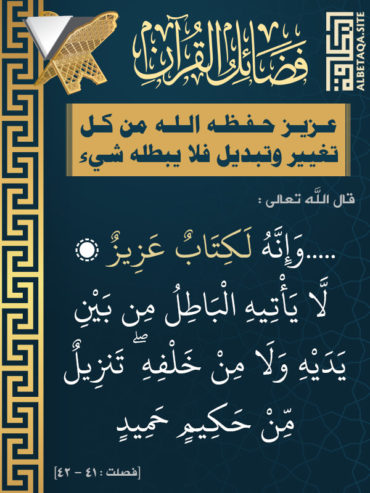 فضائل القرآن
البطاقة
ALBETAQA.SITE
عزيز حفظه الله من كل
تغيير وتبديل فلا يبطله شيء
قال الله تعالى :
.....وَإِنَّهُ لَكِتَابٌ عَزِيزٌ
لَّا يَأْتِيهِ الْبَاطِلُ مِن بَيْنِ
يَدَيْهِ وَلَا مِنْ خَلْفِهِ ۖ تَنزِيلٌ
مِّنْ حَكِيمٍ حَمِيدٍ
[فصلت : ٤١ - ٤٢]